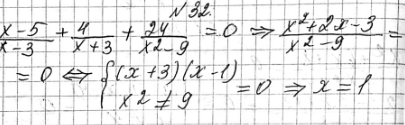 N 32.
x-5/x-3 + 4/x+3 + 24/x²-9 = 0 ⇒ x²+2x-3/x²-9 =
= 0 ⇔ { (x+3)(x-1) = 0 ⇒ x = 1
x² ≠ 9